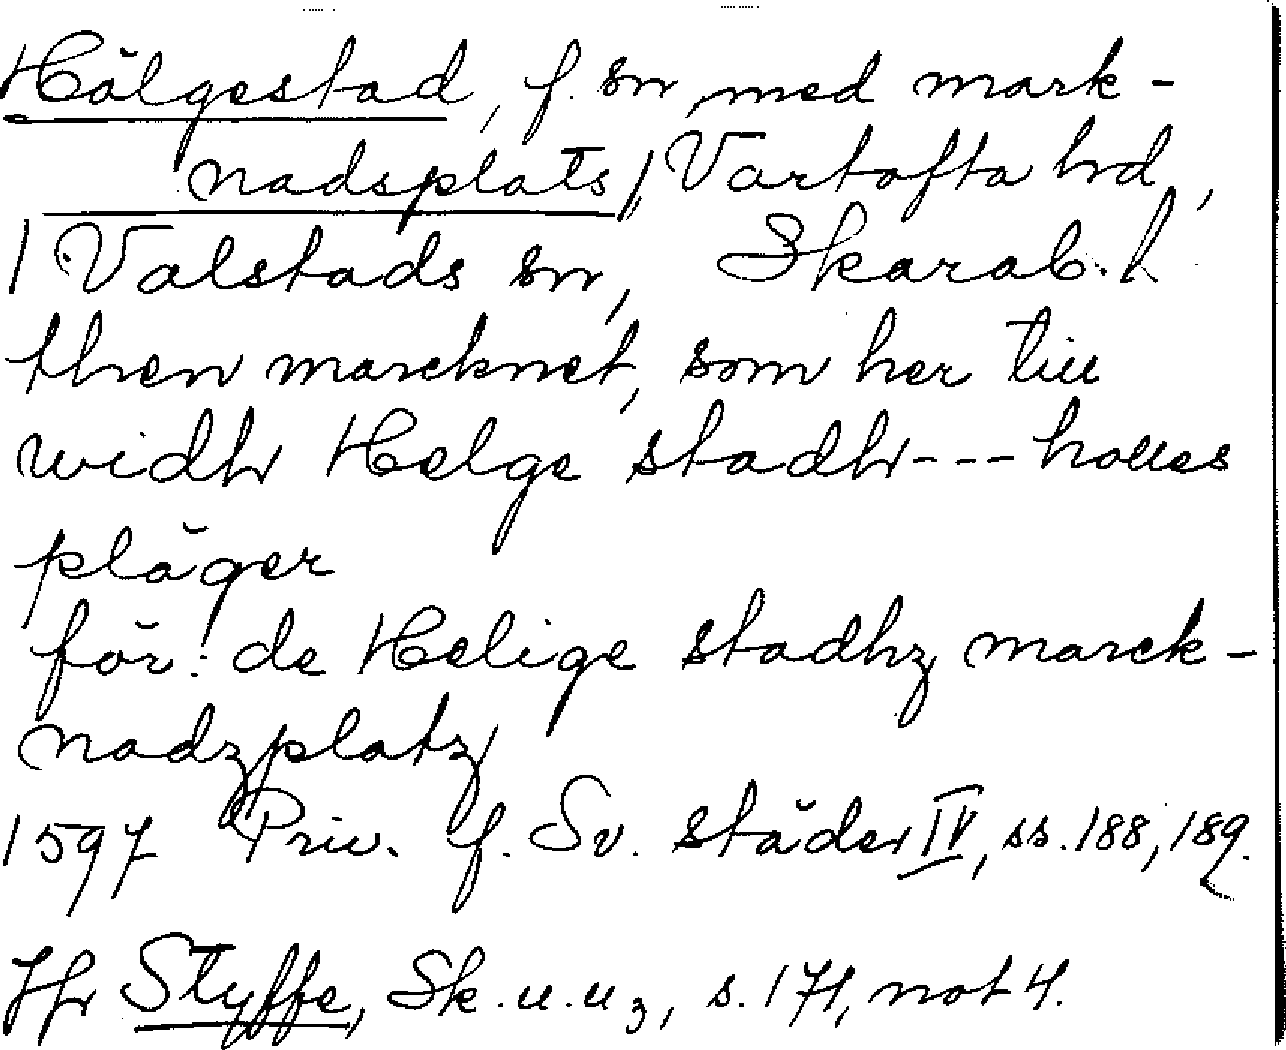 Hälgestad, f. sn med mark-
nadsplats, Vartofta hd,
/Valstads sn, Skarab. l
then marcknet, som her till
widh Helge stadh---holles
pläger
för: de Helige stadhz marck-
nadzplatz
1597 Priv. f. Sv. städer IV, ss. 188, 189.
Jfr Styffe, Sk.u.u3, s. 171, not 4.